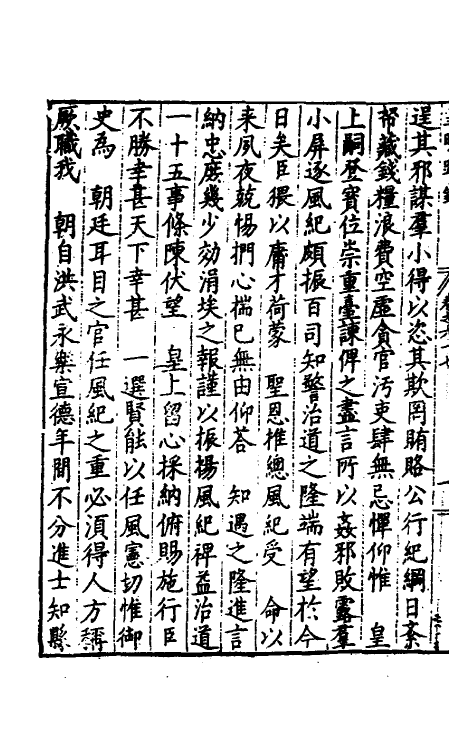 逞其邪謀羣小得以恣其欺罔賄賂公行紀綱日紊
帑藏錢糧浪費空虛貪官污吏肆無忌憚仰惟　皇
上嗣登寳位崇重臺諫俾之盡言所以姦邪敗露羣
小屏逐風紀頗振百司知警治道之隆端有望扵今
日矣臣猥以庸才荷蒙　聖恩推總風紀受　命以
来夙夜兢惕捫心揣已無由仰荅　知遇之隆進言
納忠庶幾少効涓埃之報謹以振揚風紀裨益治道
一十五事條陳伏望　皇上留心採納俯賜施行臣
不勝幸甚天下幸甚　一選賢能以任風憲切惟御
史為　朝廷耳目之官任風紀之重必湏得人方稱
厥職我　朝自洪武永樂宣德年間不分進士知縣